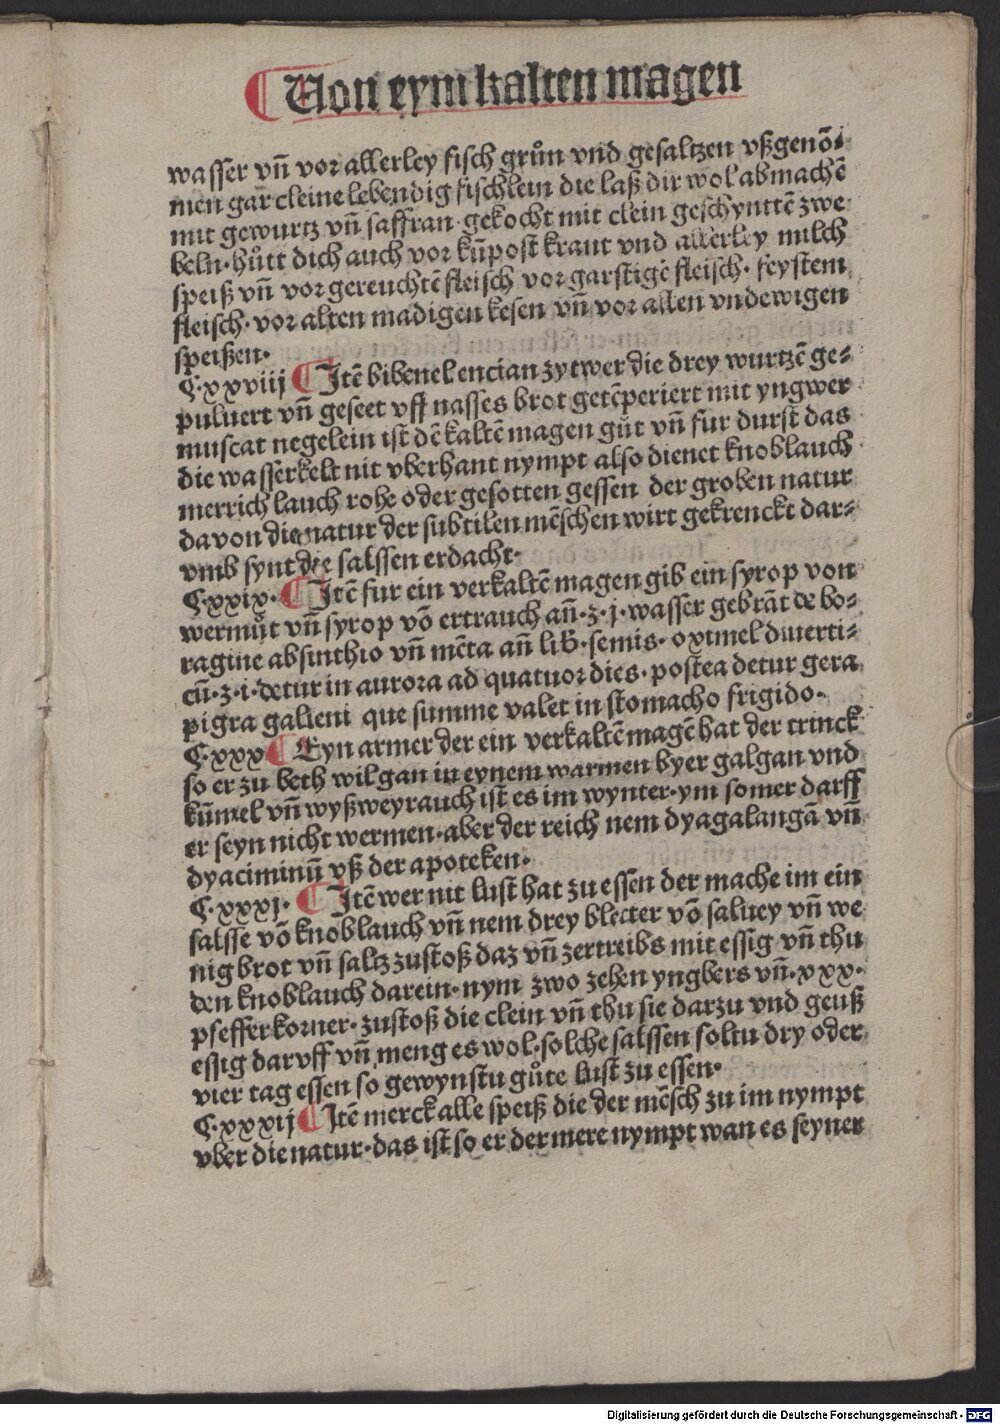 Von eym kalten magen
wasser vñ vor allerley fisch grůn vnd gesaltzen vßgenō⸗
men gar cleine lebendig fischlein die laß dir wol abmachē
mit gewurtz vñ saffran gekocht mit clein geschynttē zwe
beln· hůtt dich auch vor kūpost kraut vnd allerley milch
speiß vñ vor gereuchtē fleisch vor garstigē fleisch· feystem
fleisch· vor alten madigen kesen vñ vor allen vndewigen
speißen·
C·xxviij Itē bibenel encian zytwer die drey wurtzē ge⸗
puluert vñ geseet vff nasses brot getēperiert mit yngwer
muscat negelein ist dē kaltē magen gůt vñ fur durst das
die wasserkelt nit vberhant nympt also dienet knoblauch
merrich lauch rohe oder gesotten gessen der groben natur
davon die natur der subtilen mēschen wirt gekrenckt dar⸗
vmb synt die salssen erdacht·
C·xxix· Itē fur ein verkaltē magen gib ein syrop von
wermůt vñ syrop vō ertrauch añ·ʒ·j· wasser gebrāt de bo⸗
ragine absinthio vñ mēta añ lib·semis· oximel diuerti⸗
cū·ʒ·i·detur in aurora ad quatuor dies· postea detur gera
pigra galieni que summe valet in stomacho frigido·
C·xxx Eyn armer der ein verkaltē magē hat der trinck
so er zu beth wil gan in eynem warmen byer galgan vnd
kūmel vñ wyßweyrauch ist es im wynter·ym somer darff
er seyn nicht wermen·aber der reich nem dyagalangā vñ
dyaciminū vß der apoteken·
C·xxxj· Itē wer nit lust hat zu essen der mache im ein
salsse vō knoblauch vñ nem drey blecter vō saluey vñ we
nig brot vñ saltz zustoß daz vñ zertreibs mit essig vñ thu
den knoblauch darein·nym zwo zehen yngbers vñ·xxx·
pfefferkorner·zustoß die clein vñ thu sie darzu vnd geuß
essig darvff vñ meng es wol·solche salssen soltu dry oder
vier tag essen so gewynstu gůte lust zu essen·
C·xxxij Itē merck alle speiß die der mēsch zu im nympt
vber die natur·das ist so er der mere nympt wan es seyner
Digitalisierung gefördert durch die Deutsche Forschungsgemeinschaft - DFG